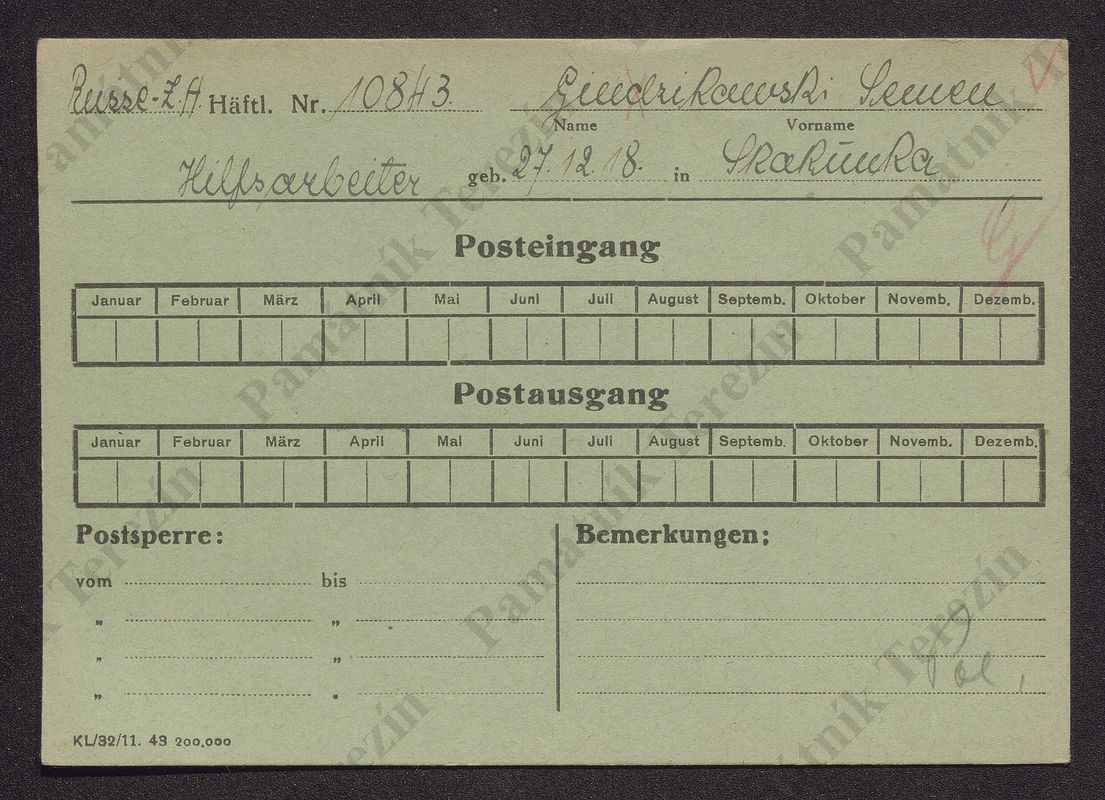 Russe-Z.A. Häftl. Nr. 10843. Giedrikowski Semen
Name Vorname
Hilfsarbeiter geb. 27.12.18. in Skakunka
Posteingang
Januar Februar März April Mai Juni Juli August Septemb. Oktober Novemb. Dezemb.
Postausgang
Januar Februar März April Mai Juni Juli August Septemb. Oktober Novemb. Dezemb.
Postsperre: Bemerkungen:
vom bis
„ „
„ „
„ „
KL/32/11. 43 200.000
Památník Terezín